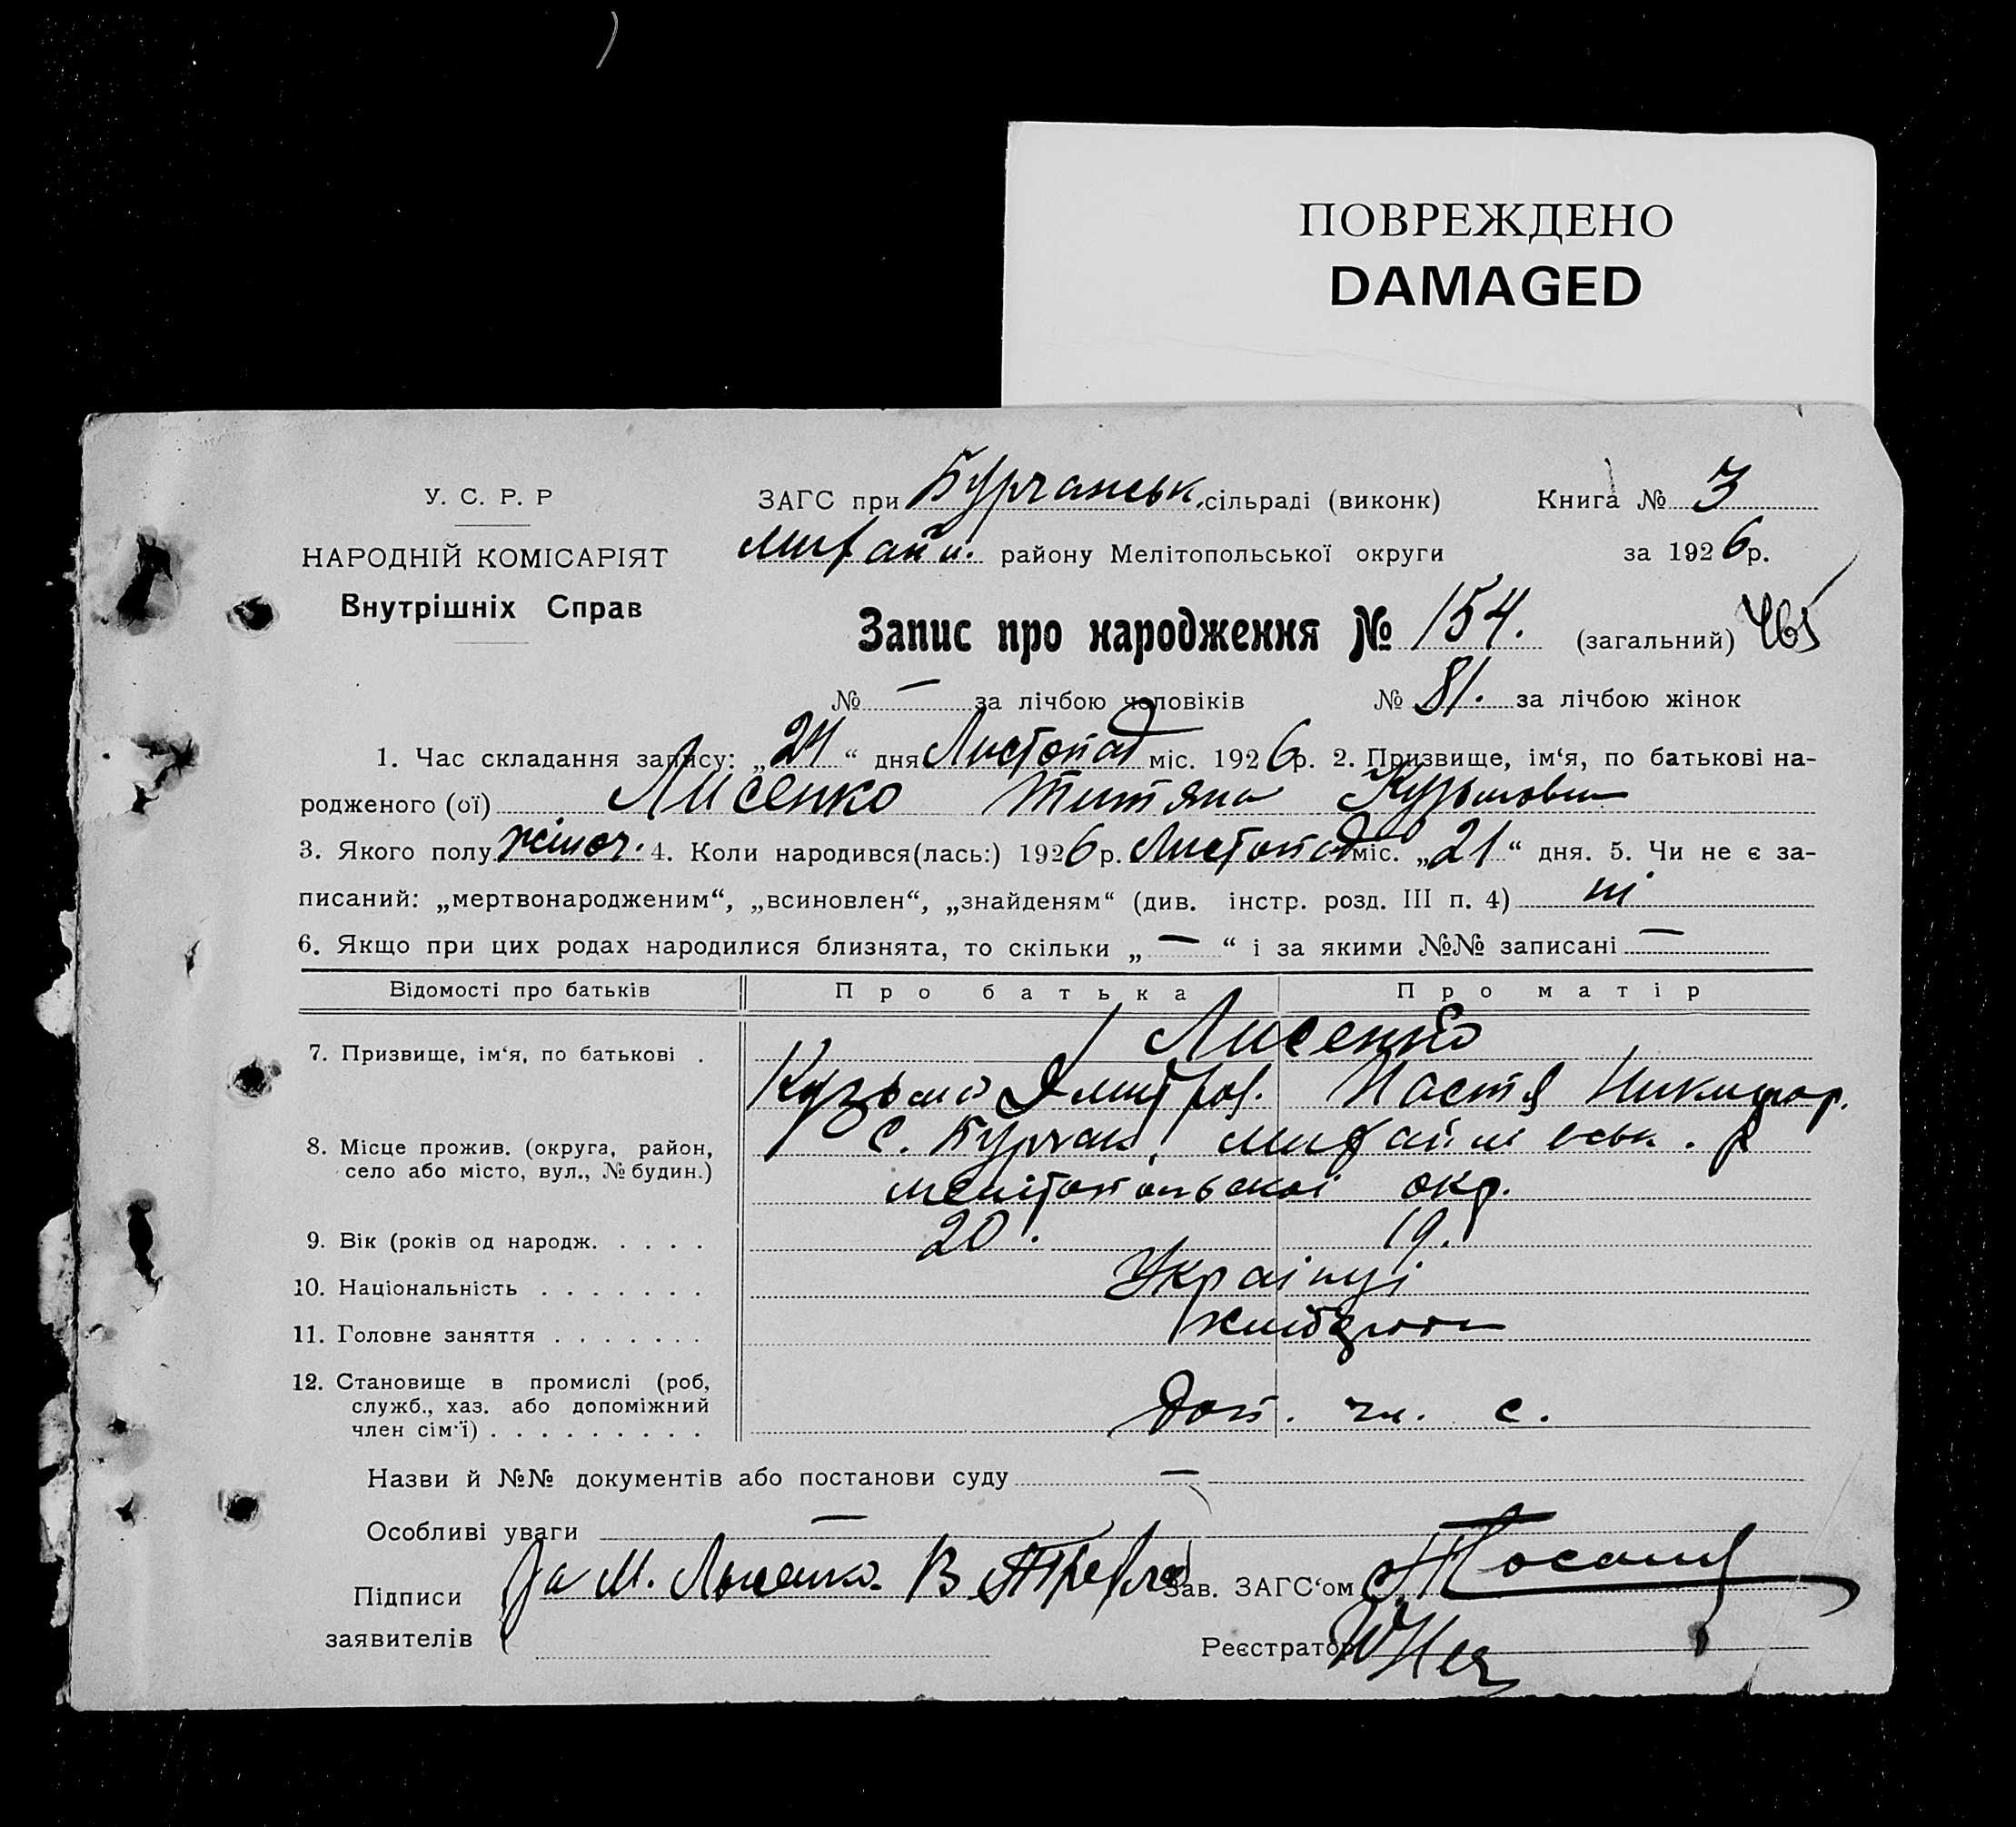 ПОВРЕЖДЕНО
DAMAGED
У. С. Р. Р
НАРОДНІЙ КОМІСАРІЯТ
Внутрішніх Справ
ЗАГС при Бурчанськ. сільраді (виконк)
Михайл. району Мелітопольської округи
Книга № 3
за 1926 р.
Запис про народження № 154. (загальний)
№ — за лічбою чоловіків № 81. за лічбою жінок
1. Час складання запису: „24“ дня Листопад міс. 1926 р. 2. Призвище, ім‘я, по батькові на-
родженого (ої) Лисенко Титяна Кузьмовна
3. Якого полу жіноч. 4. Коли народився(лась:) 1926 р. Листопад міс. „21“ дня. 5. Чи не є за-
писаний: „мертвонародженим“, „всиновлен“, „знайденям“ (див. інстр. розд. III п. 4) ні
6. Якщо при цих родах народилися близнята, то скільки „—“ і за якими №№ записані —
Відомості про батьків Про батька Про матір
7. Призвище, ім‘я, по батькові . Лисенко
Кузьма Дмитров. Настя Никифор.
8. Місце прожив. (округа, район,
село або місто, вул., № будин.)
с. Бурчак, Михайлівськ. р
мелітопольської окр.
9. Вік (років од народж. . . . . 20. 19.
10. Національність . . . . . . . Українці
11. Головне заняття . . . . . . . хлібороби
12. Становище в промислі (роб,
служб., хаз. або допоміжний
член сім‘ї) . . . . . . . . . Доп. чл. с.
Назви й №№ документів або постанови суду —
Особливі уваги —
Підписи
заявителів
За М. Лысенко. В
Зав. ЗАГС‘ом
Реєстратор